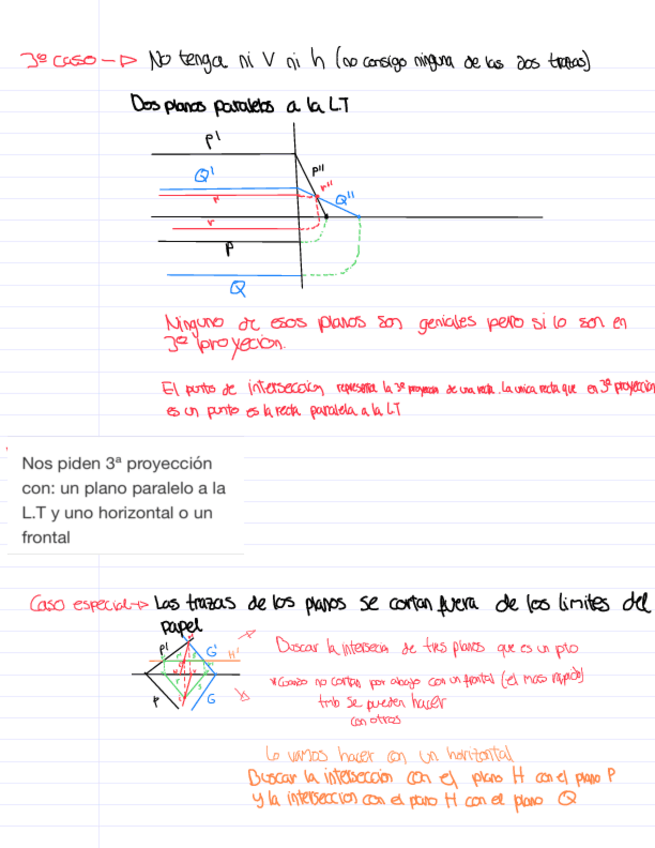 3º caso → No tenga ni V ni h (no consigo ninguna de las dos trazas)
Dos planos paralelos a la LT
P'
P''
Q'
r''
Q''
r'
r
P
Q
Ninguno de esos planos son geniales pero si lo son en
3ª proyección.
El punto de intersección representa la 3ª proyección de una recta. La unica recta que en 3ª proyección
es un punto es la recta paralela a la LT
Nos piden 3ª proyección
con: un plano paralelo a la
L.T y uno horizontal o un
frontal
Caso especial → Las trazas de los planos se cortan fuera de los limites del
papel
P'
G'
H'
P
G
Buscar la intersección de tres planos que es un pto
*Cuando no cortan por abajo con un frontal (el mas rapido)
tmb se pueden hacer
con otros
Lo vamos hacer con un horizontal
Buscar la intersección con el plano H con el plano P
y la interseccion con el plano H con el plano Q